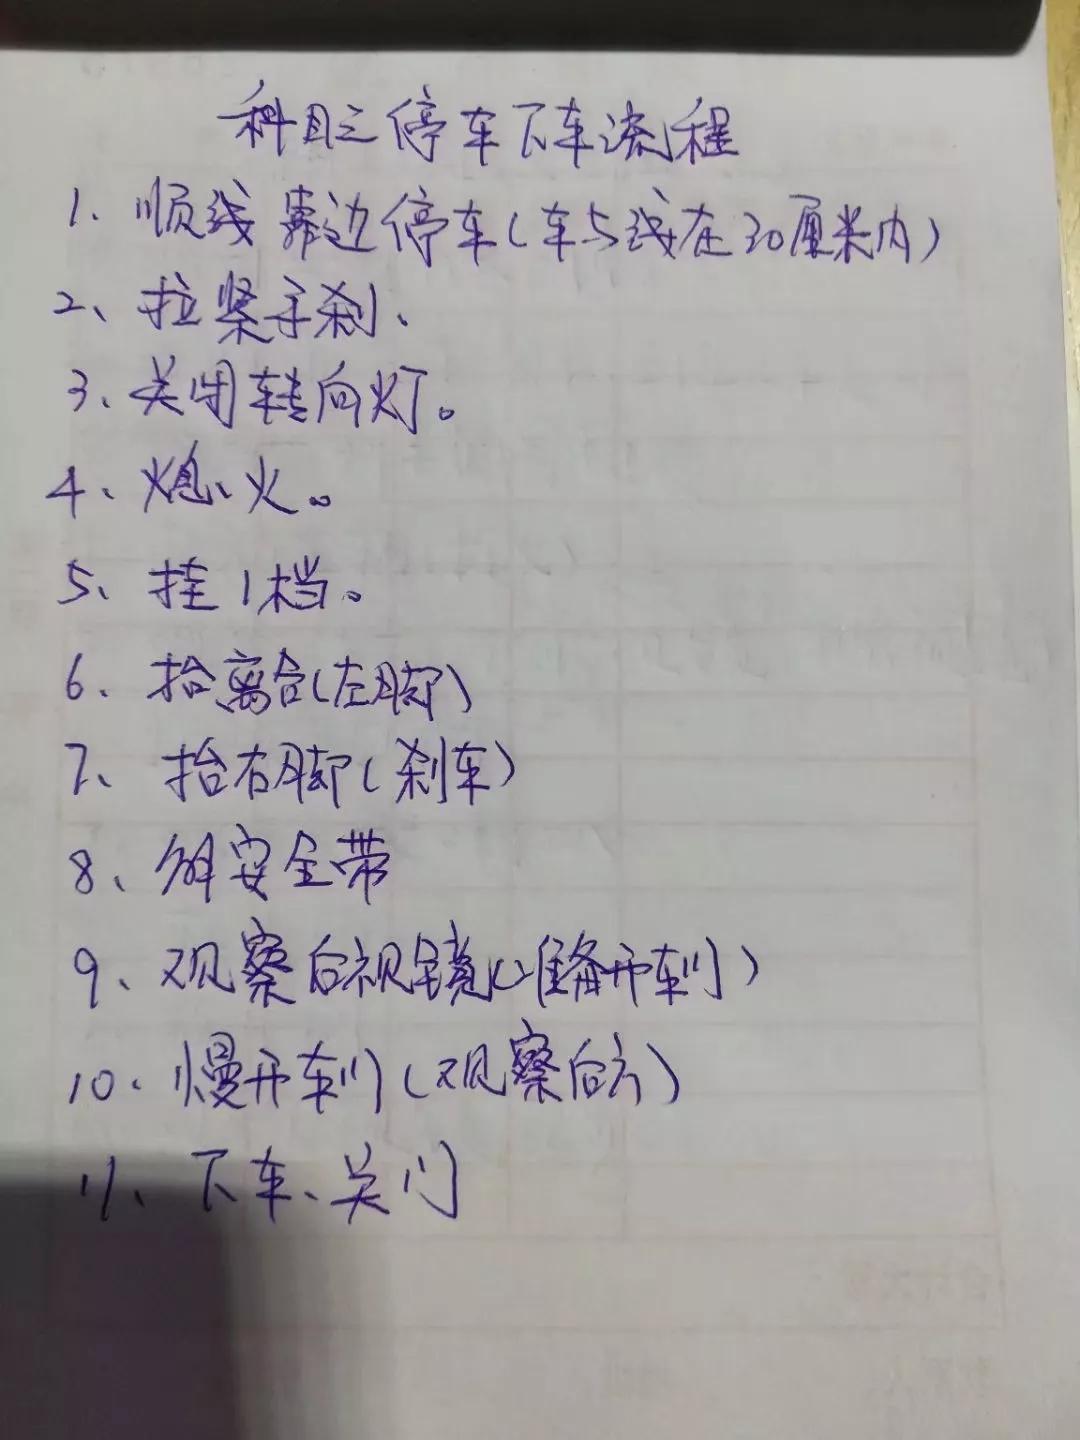 科目三停车下车流程
1、顺线靠边停车(车与线在30厘米内)
2、拉紧手刹、
3、关闭转向灯。
4、熄火。
5、挂1档。
6、抬离合(左脚)
7、抬右脚(刹车)
8、解安全带
9、观察后视镜(准备开车门)
10、慢开车门(观察后方)
11、下车、关门